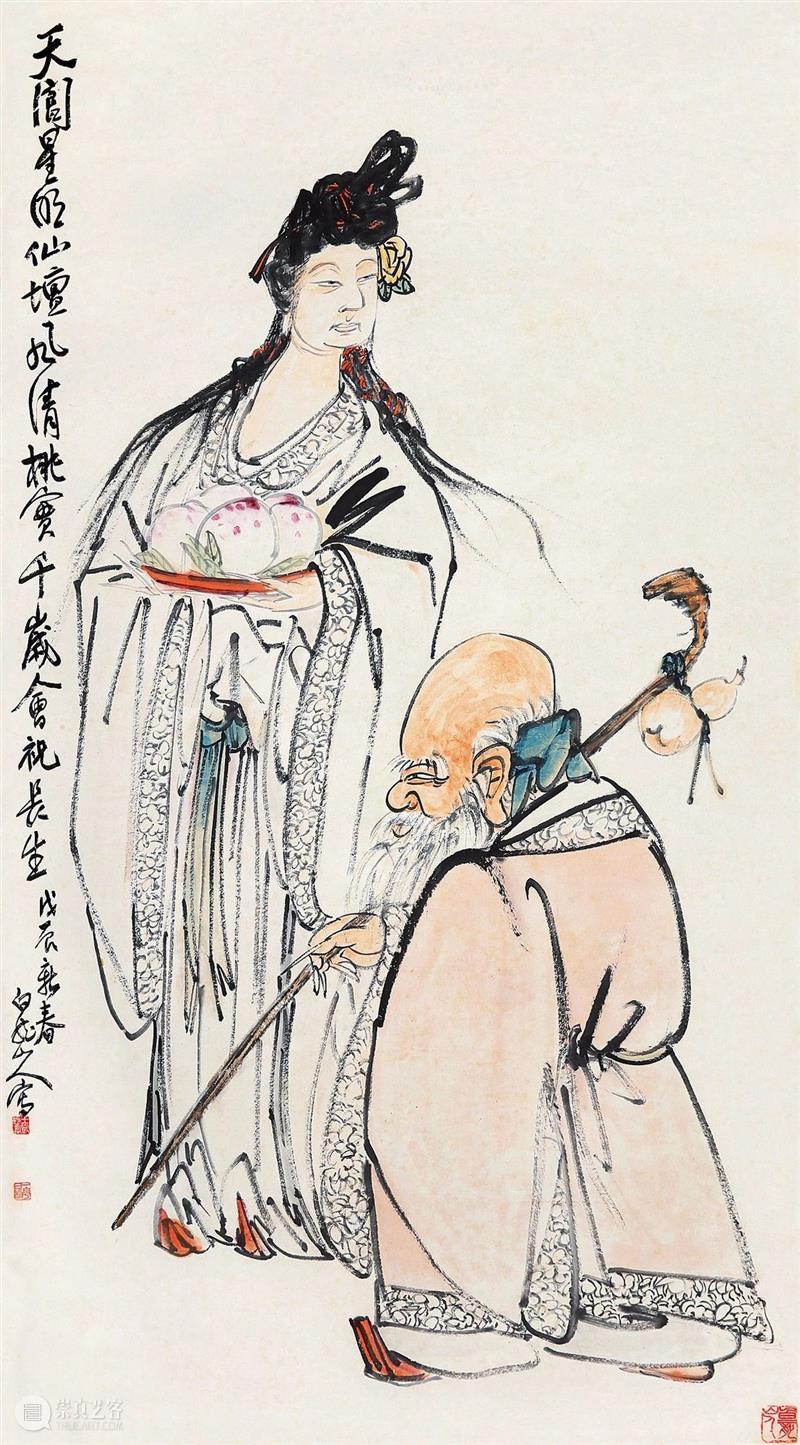 天閶星明仙壇風清桃實千歲會祝長生戊辰新春
白龍山人寫
崇真艺客
TRUEART.COM